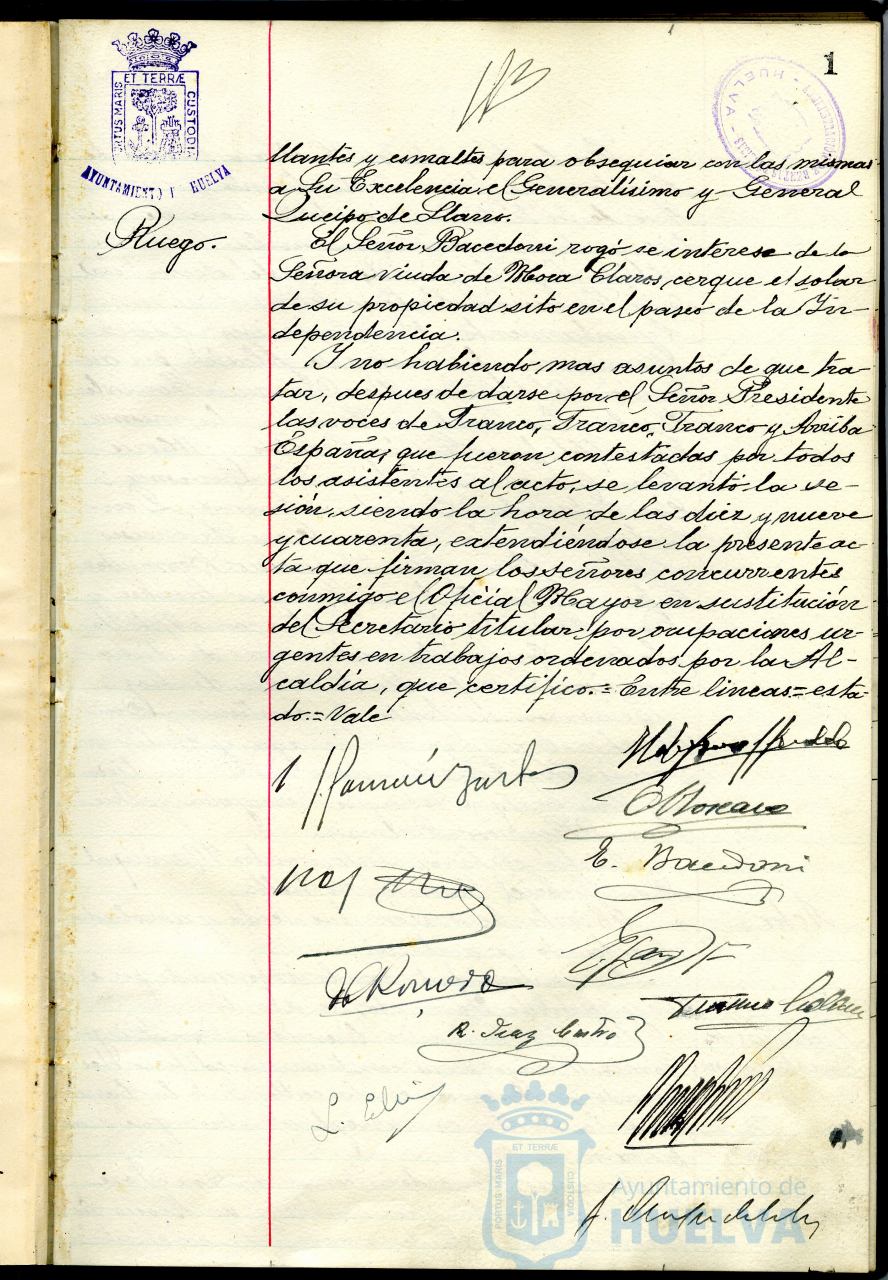 1
ET TERRÆ
PORTUS MARIS
CUSTODIA
AYUNTAMIENTO HUELVA
HUELVA
llantes y esmaltes para obsequiar con las mismas
a Su Excelencia el Generalísimo y General
Queipo de Llano.
Ruego.
El Señor Bacedoni rogó se interese de la
Señora viuda de Mora Claros, cerque el solar
de su propiedad sito en el paseo de la In-
dependencia.
Y no habiendo mas asuntos de que tra-
tar, despues de darse por el Señor Presidente
las voces de Franco, Franco, Franco y Arriba
España, que fueron contestadas por todos
los asistentes al acto, se levantó la se-
sión, siendo la hora de las diez y nueve
y cuarenta, extendiéndose la presente ac-
ta que firman los señores concurrentes
conmigo el Oficial Mayor en sustitución
del Secretario titular por ocupaciones ur-
gentes en trabajos ordenados por la Al-
caldía, que certifico.=Entre lineas=esta-
do.=Vale
E. Bacedoni
Romero
R. Diaz Castro
L.
ET TERRÆ
PORTUS MARIS
CUSTODIA
Ayuntamiento de
HUELVA